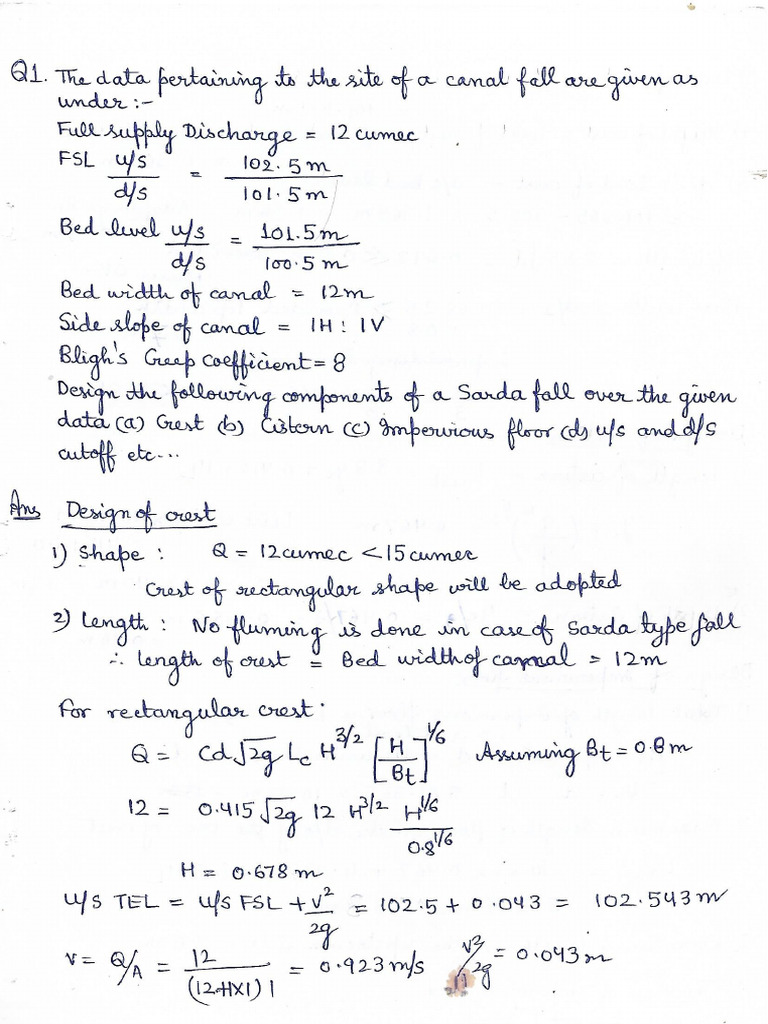 Q1. The data pertaining to the site of a canal fall are given as
under :-
Full supply Discharge = 12 cumec
FSL u/s / d/s = 102.5 m / 101.5 m
Bed level u/s / d/s = 101.5 m / 100.5 m
Bed width of canal = 12m
Side slope of canal = 1H : 1V
Bligh's Creep coefficient = 8
Design the following components of a Sarda fall over the given
data (a) Crest (b) Cistern (c) Impervious floor (d) u/s and d/s
cutoff etc...
Ans Design of crest
1) Shape : Q = 12 cumec < 15 cumec
Crest of rectangular shape will be adopted
2) Length : No fluming is done in case of Sarda type fall
∴ length of crest = Bed width of canal = 12m
For rectangular crest :
Q = Cd √2g Lc H^3/2 [H/Bt]^1/6 Assuming Bt = 0.8 m
12 = 0.415 √2g 12 H^3/2 H^1/6 / 0.8^1/6
H = 0.678 m
U/S TEL = U/S FSL + v²/2g = 102.5 + 0.043 = 102.543 m
V = Q/A = 12 / (12+1×1) 1 = 0.923 m/s v²/2g = 0.043 m